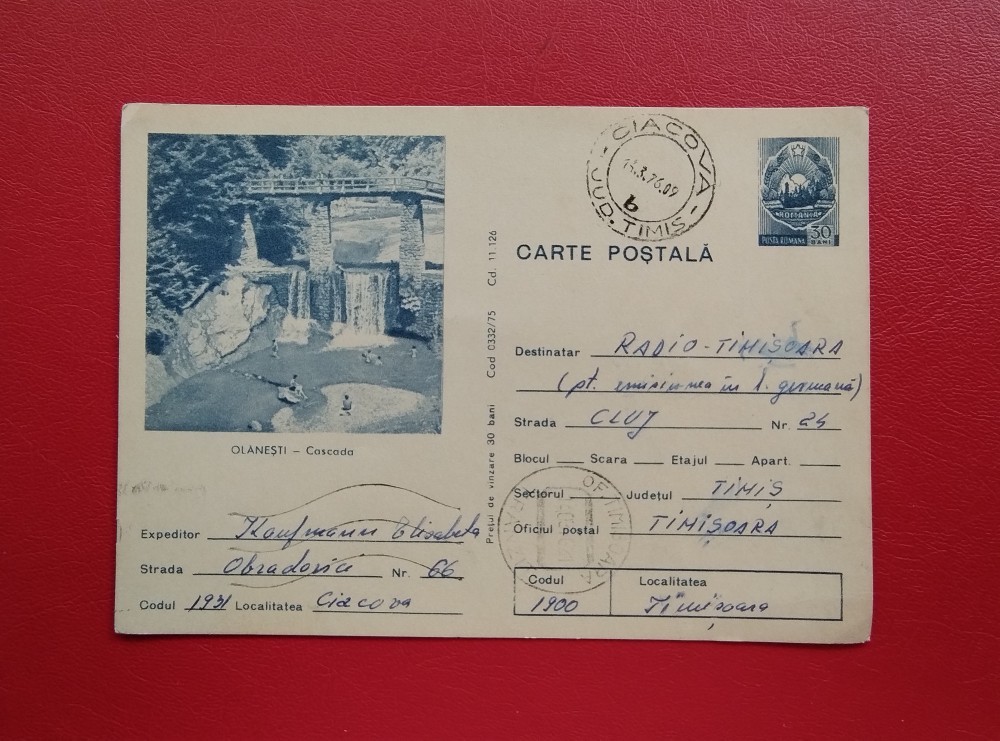 CIACOVA
13.3.76.09
b
JUD. TIMIS
ROMANIA
POSTA ROMANA 30 BANI
CARTE POȘTALĂ
OLĂNEȘTI – Cascada
Prețul de vînzare 30 bani Cod 0332/75 Cd. 11.126
Destinatar RADIO-TIMIȘOARA
(pt. emisiunea în l. germană)
Strada CLUJ Nr. 24
Blocul Scara Etajul Apart.
Sectorul Județul TIMIȘ
Oficiul poștal TIMIȘOARA
Codul Localitatea
1900 Timișoara
OF. TIMISOARA
Expeditor Kaufmann Elisabeta
Strada Obradovici Nr. 66
Codul 1931 Localitatea Ciacova